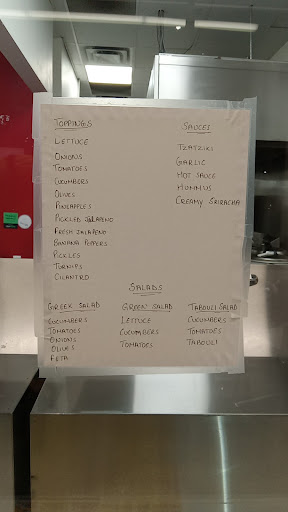 TOPPINGS
LETTUCE
ONIONS
TOMATOES
CUCUMBERS
OLIVES
PINEAPPLES
PICKLED JALAPENO
FRESH JALAPENO
BANANA PEPPERS
PICKLES
TURNIPS
CILANTRO
SAUCES
TZATZIKI
GARLIC
HOT SAUCE
HUMMUS
CREAMY SRIRACHA
SALADS
GREEK SALAD
CUCUMBERS
TOMATOES
ONIONS
OLIVES
FETA
GREEN SALAD
LETTUCE
CUCUMBERS
TOMATOES
TABOULI SALAD
CUCUMBERS
TOMATOES
TABOULI